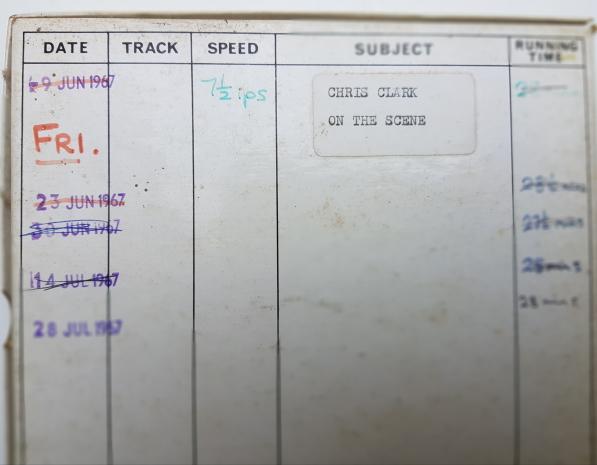 DATE TRACK SPEED SUBJECT RUNNING TIME
9 JUN 1967 7½ ips CHRIS CLARK
ON THE SCENE
FRI.
23 JUN 1967 28½ mins
30 JUN 1967 27½ mins
14 JUL 1967 28 mins
28 JUL 1967 28 mins